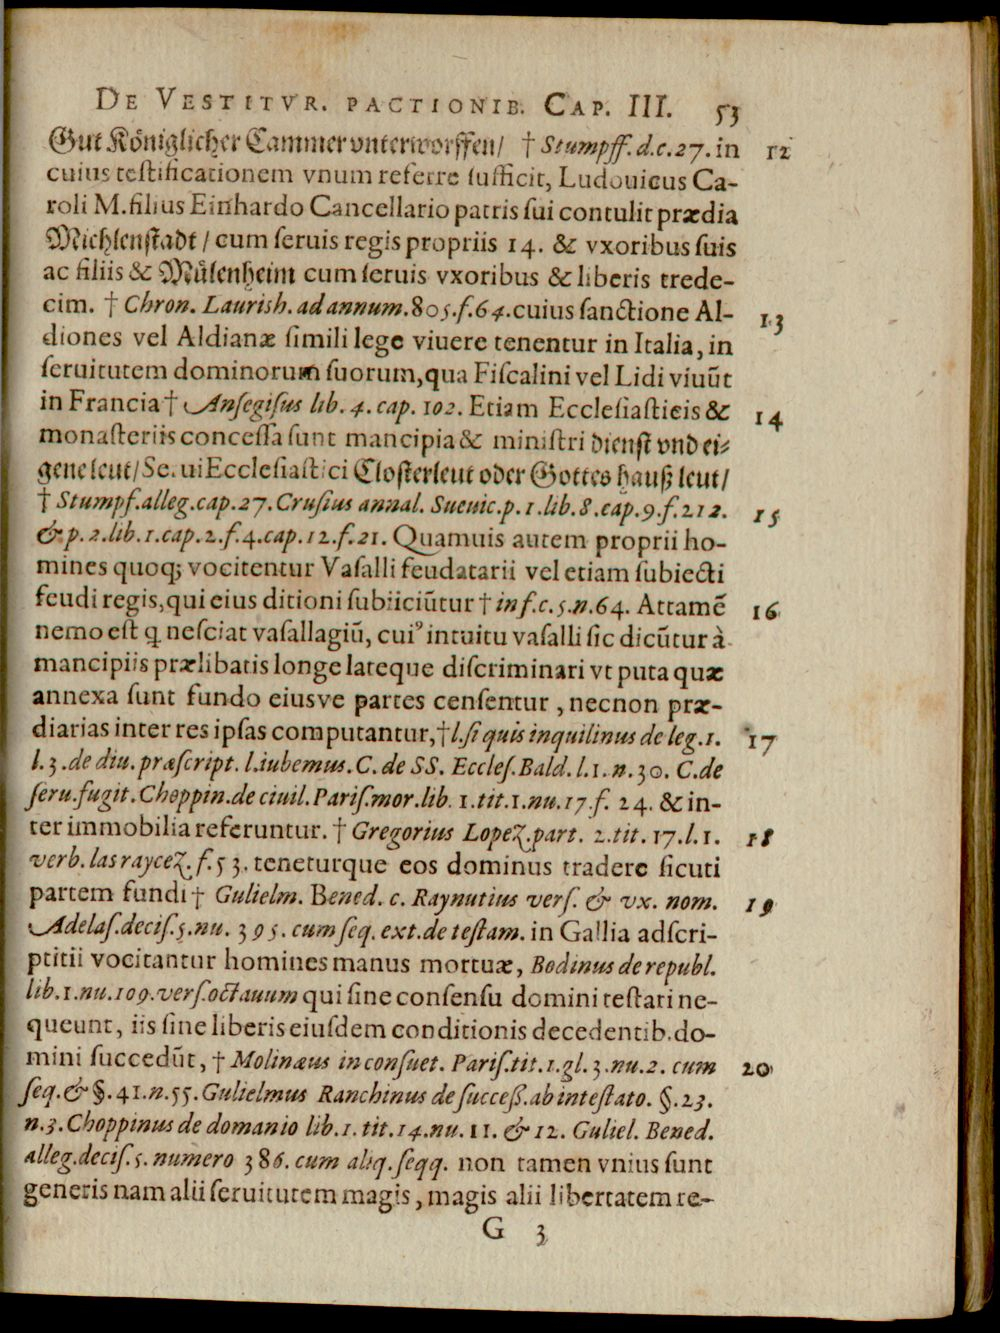 De Vestitvr. pactionib. Cap. III. 53
Gut Königlicher Cammer vnterworffen/ † Stumpff. d.c.27. in 12
cuius testificationem vnum referre sufficit, Ludouicus Ca-
roli M. filius Einhardo Cancellario patris sui contulit prædia
Michlenstadt / cum seruis regis propriis 14. & vxoribus suis
ac filiis & Mülenheim cum seruis vxoribus & liberis trede-
cim. † Chron. Laurish. ad annum. 805. f. 64. cuius sanctione Al- 13
diones vel Aldianæ simili lege viuere tenentur in Italia, in
seruitutem dominorum suorum, qua Fiscalini vel Lidi viuūt
in Francia † Ansegisus lib. 4. cap. 102. Etiam Ecclesiasticis & 14
monasteriis concessa sunt mancipia & ministri dienst vnd ei-
gene leut/ Se. ui Ecclesiastici Closterleut oder Gottes hauß leut/
† Stumpf. alleg. cap. 27. Crusius annal. Sueuic. p. 1. lib. 8. cap. 9. f. 212. 15
& p. 2. lib. 1. cap. 2. f. 4. cap. 12. f. 21. Quamuis autem proprii ho-
mines quoq; vocitentur Vasalli feudatarii vel etiam subiecti
feudi regis, qui eius ditioni subiiciūtur † inf. c. 5. n. 64. Attamē 16
nemo est q nesciat vasallagiū, cui⁹ intuitu vasalli sic dicūtur à
mancipiis prælibatis longe lateque discriminari vt puta quæ
annexa sunt fundo eiusve partes censentur, necnon præ-
diarias inter res ipsas computantur, † l. si quis inquilinus de leg. 1. 17
l. 3. de diu. præscript. l. iubemus. C. de SS. Eccles. Bald. l. 1. n. 30. C. de
seru. fugit. Choppin. de ciuil. Paris. mor. lib. 1. tit. 1. nu. 17. f. 24. & in-
ter immobilia referuntur. † Gregorius Lopez. part. 2. tit. 17. l. 1. 18
verb. las raycez. f. 53. teneturque eos dominus tradere sicuti
partem fundi † Gulielm. Bened. c. Raynutius vers. & vx. nom. 19
Adelas. decis. 5. nu. 395. cum seq. ext. de testam. in Gallia adscri-
ptitii vocitantur homines manus mortuæ, Bodinus de republ.
lib. 1. nu. 109. vers. octauum qui sine consensu domini testari ne-
queunt, iis sine liberis eiusdem conditionis decedentib. do-
mini succedūt, † Molinæus in consuet. Paris. tit. 1. gl. 3. nu. 2. cum 20
seq. & §. 41. n. 55. Gulielmus Ranchinus de success. ab intestato. §. 23.
n. 3. Choppinus de domanio lib. 1. tit. 14. nu. 11. & 12. Guliel. Bened.
alleg. decis. 5. numero 386. cum aliq. seqq. non tamen vnius sunt
generis nam alii seruitutem magis, magis alii libertatem re-
G 3